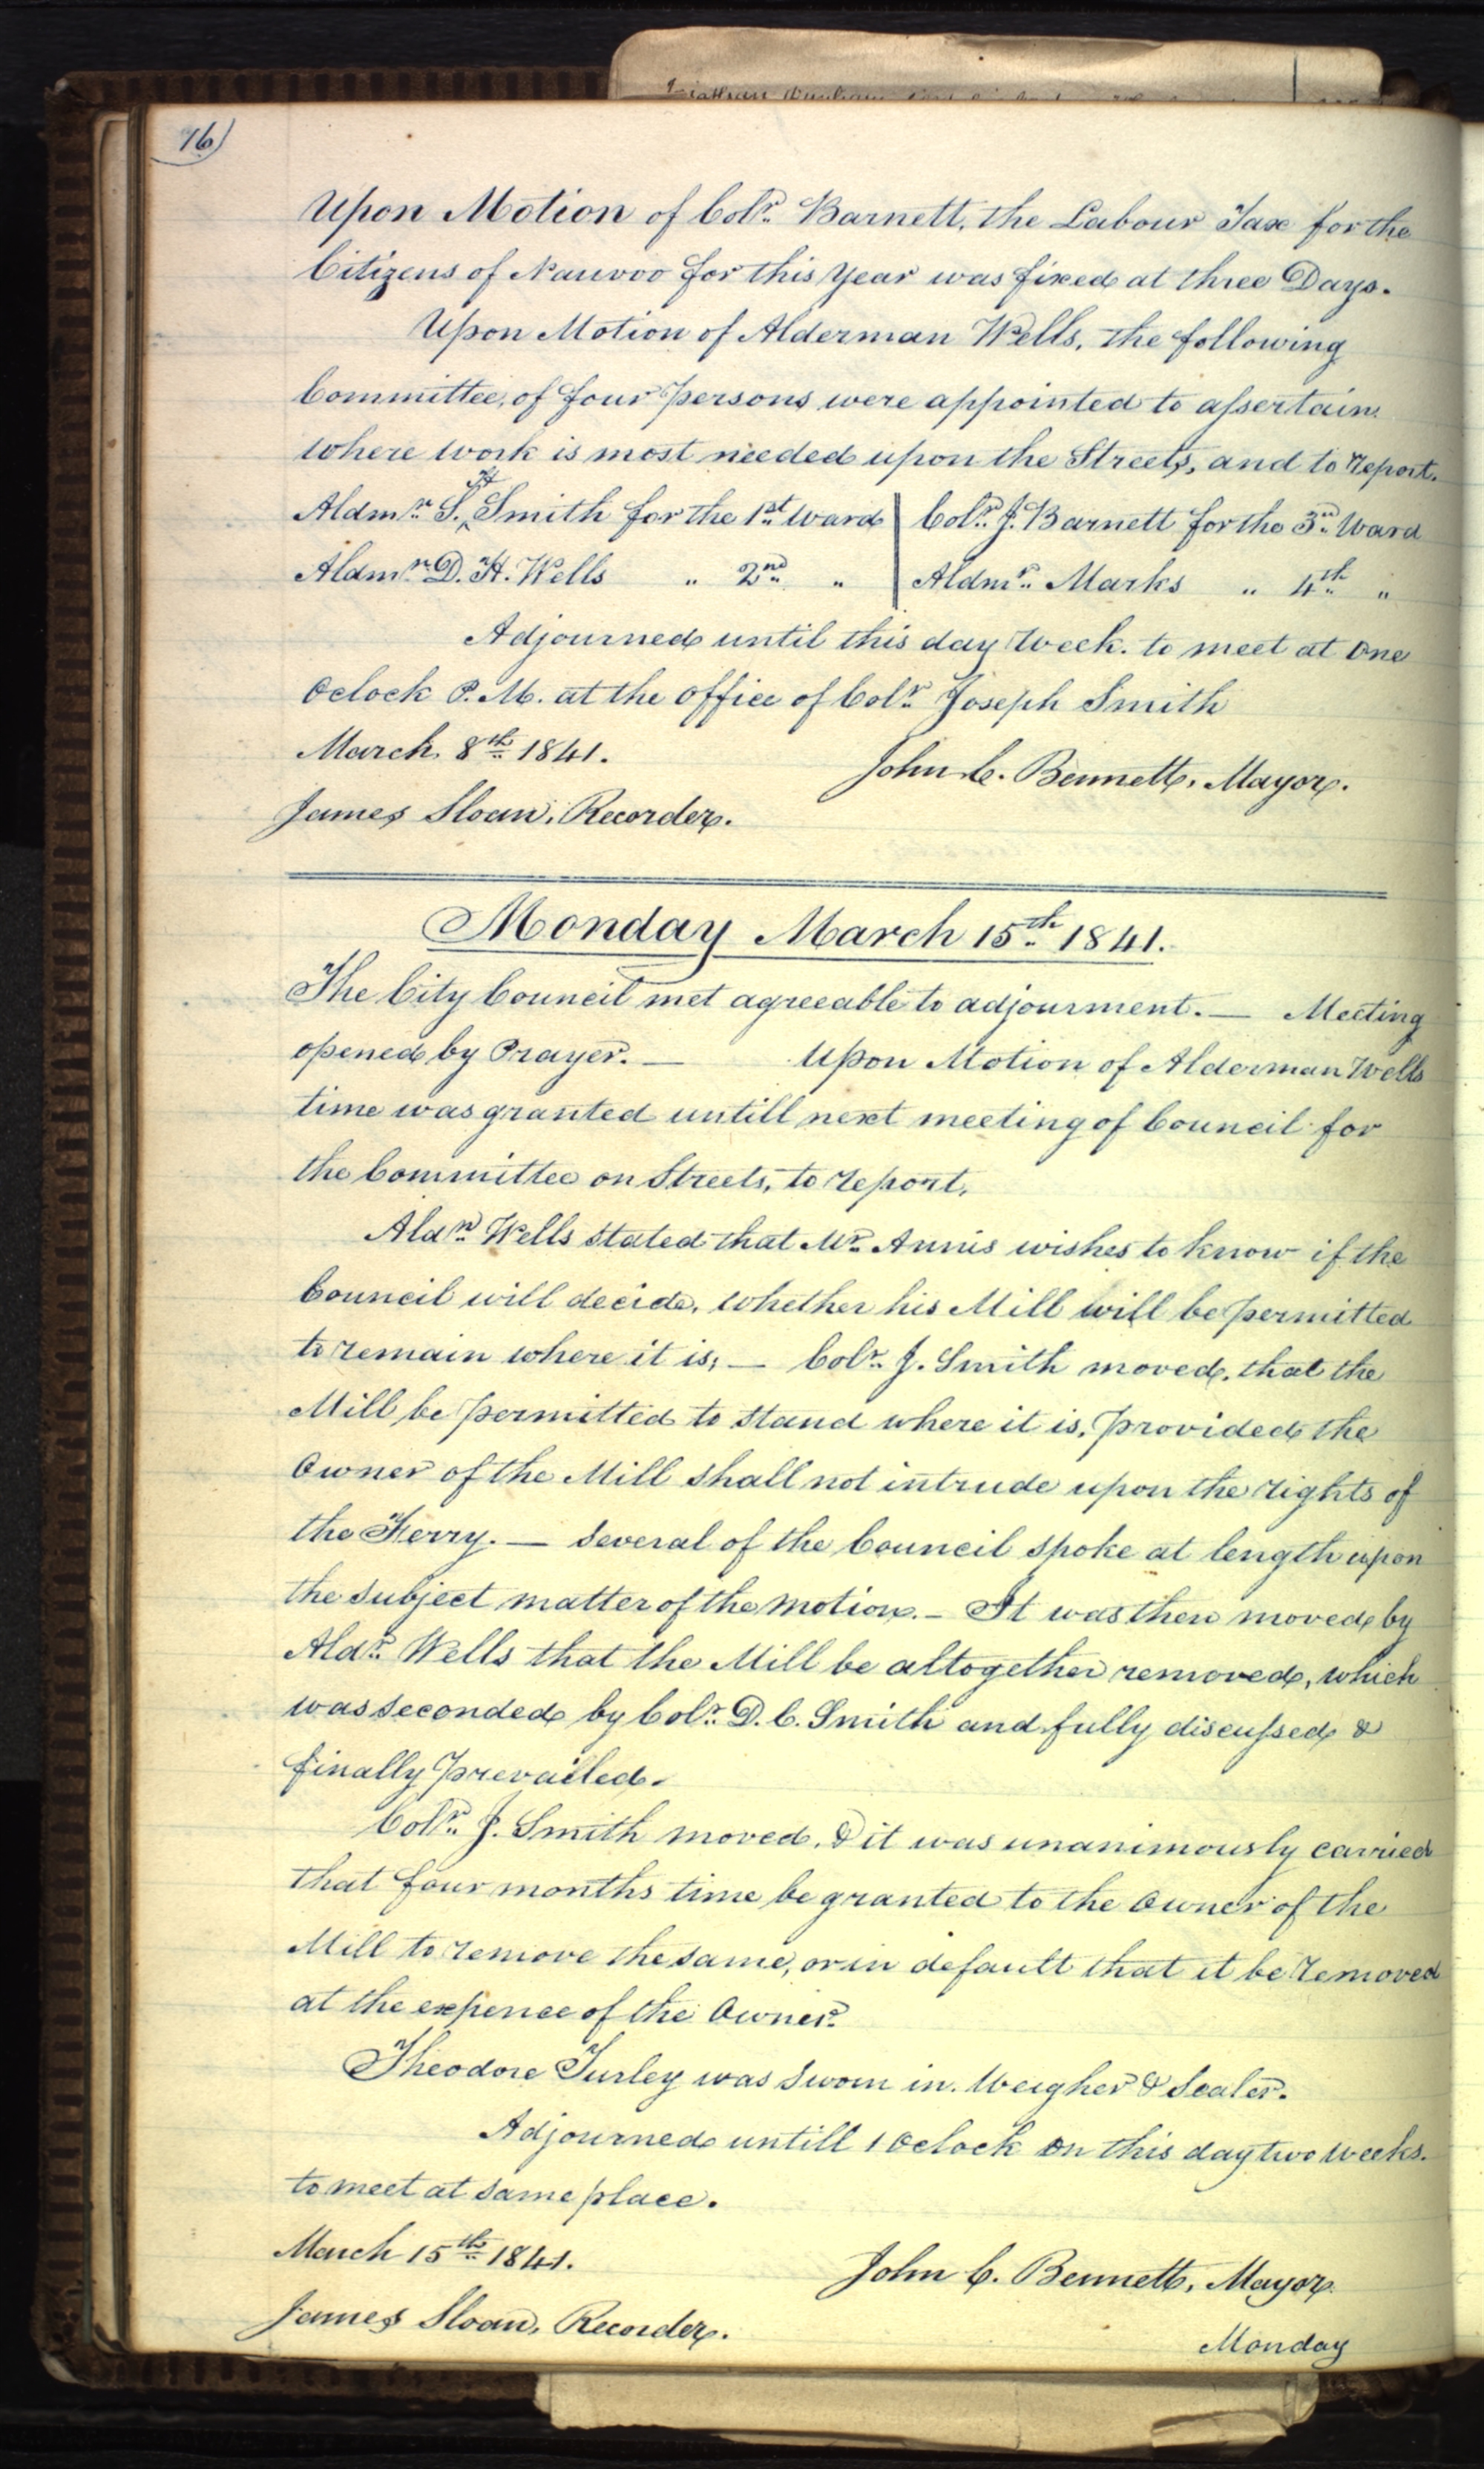 16)
Upon Motion of Colr. Barnett, the Labour Tax for the
Citizens of Nauvoo for this Year was fixed at three Days.
Upon Motion of Alderman Wells, the following
Committee, of four persons were appointed to assertain
where work is most needed upon the Streets, and to report.
Aldmn. S. H. Smith for the 1st. Ward | Colr. J. Barnett for the 3rd. Ward
Aldmn. D. H. Wells " 2nd. " | Aldmn. Marks " 4th. "
Adjourned until this day Week. to meet at One
Oclock P. M. at the office of Colr. Joseph Smith
March 8th. 1841.
John C. Bennett, Mayor.
James Sloan, Recorder.
Monday March 15th. 1841.
The City Council met agreeable to adjourment. — Meeting
opened by Prayer. — Upon Motion of Alderman Wells
time was granted untill next meeting of Council for
the Committee on Streets, to report.
Aldn. Wells stated that Mr. Annis wishes to know if the
Council will decide, whether his Mill will be permitted
to remain where it is; — Colr. J. Smith moved, that the
Mill be permitted to stand where it is, provided the
Owner of the Mill shall not intrude upon the rights of
the Ferry. — Several of the Council spoke at length upon
the subject matter of the motion. — It was then moved by
Aldn. Wells that the Mill be altogether removed, which
was seconded by Colr. D. C. Smith and fully discussed &
finally prevailed.
Colr. J. Smith moved, & it was unanimously carried
that four months time be granted to the Owner of the
Mill to remove the same, or in default that it be removed
at the expence of the Owner.
Theodore Turley was sworn in. Weigher & Sealer.
Adjourned untill 1 Oclock on this day two weeks.
to meet at same place.
March 15th. 1841.
John C. Bennett, Mayor
James Sloan, Recorder.
Monday